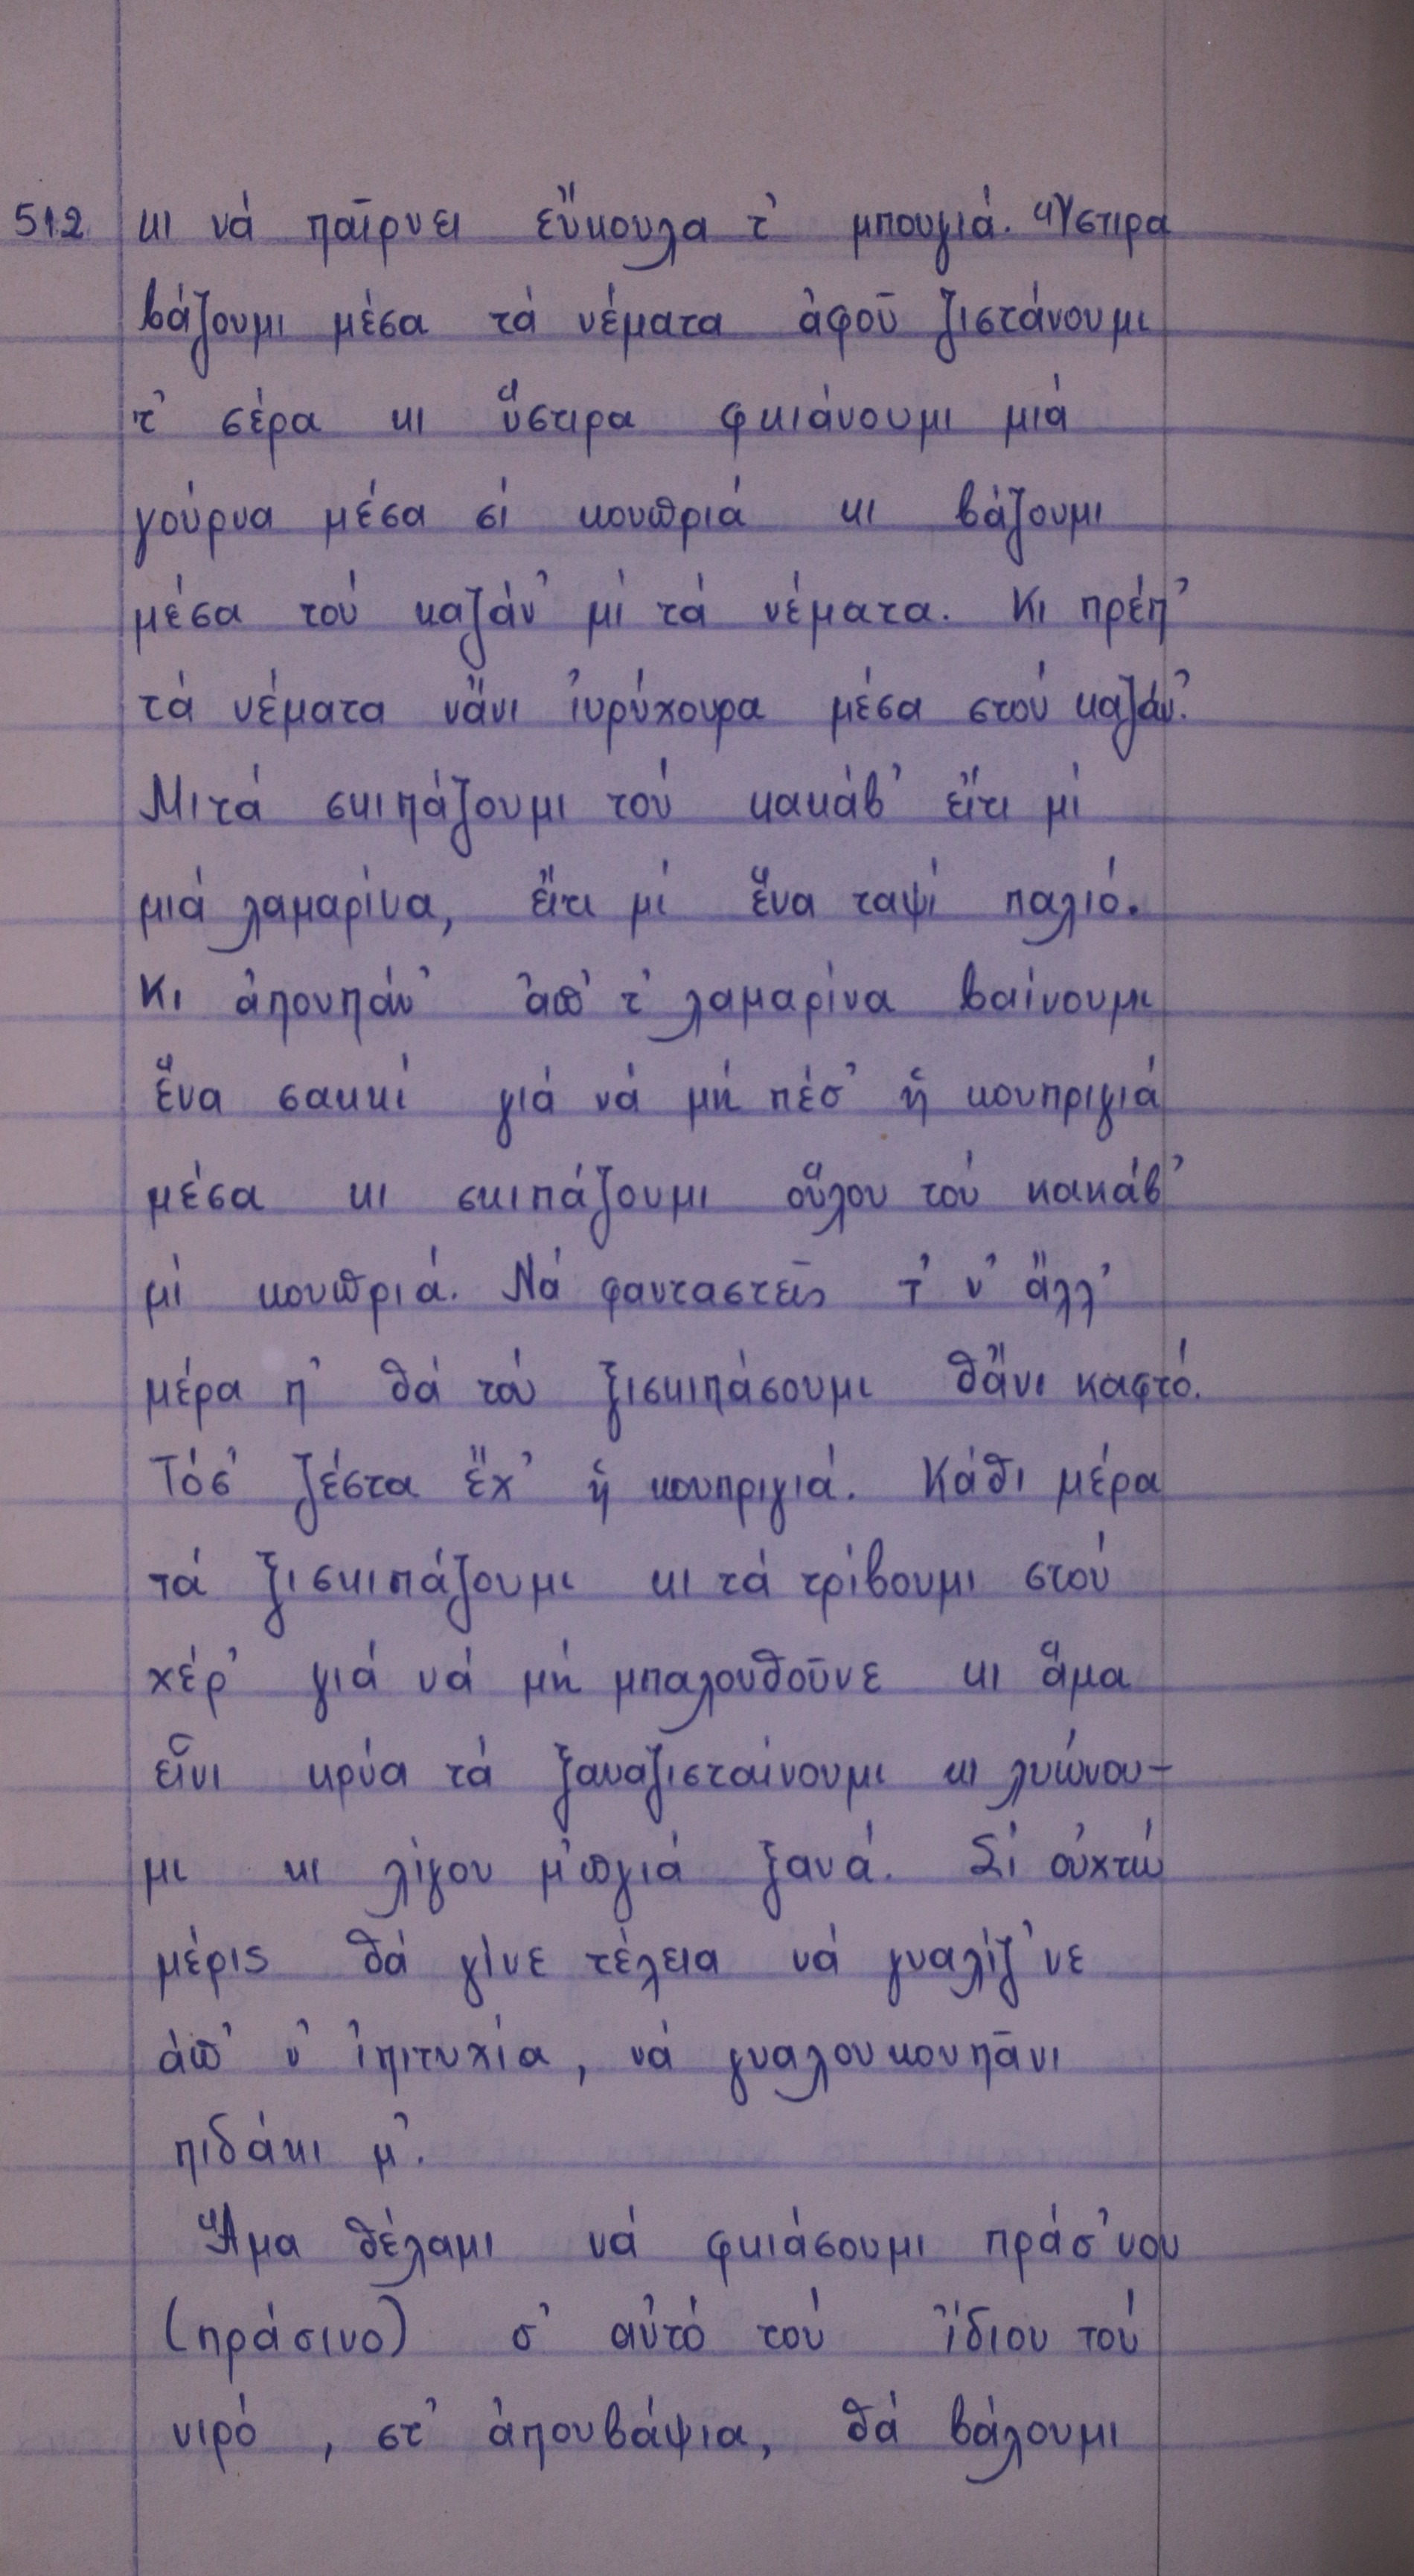 512 κι νά παῖρνει εὔκουλα τ' μπουγιά. Ὕστιρα
βάζουμι μέσα τά νέματα ἀφοῦ ζιστάνουμι
τ' σέρα κι ὕστιρα φκιάνουμι μιά
γούρνα μέσα σί κουπριά κι βάζουμι
μέσα τού καζάν' μί τά νέματα. Κι πρέπ'
τά νέματα νἄνι ἰυρύχουρα μέσα στού καζάν'.
Μιτά σκιπάζουμι τού κακάβ' εἴτι μί
μιά λαμαρίνα, εἴτι μί ἕνα ταψί παλιό.
Κι ἀπουπάν' ἀπ' τ' λαμαρίνα βαίνουμι
ἕνα σακκί γιά νά μή πέσ' ἡ κουπριγιά
μέσα κι σκιπάζουμι οὕλου τού κακάβ'
μί κουπριά. Νά φανταστεῖς τ' ν' ἄλλ'
μέρα π' θά τού ξισκιπάσουμι θἄνι καφτό.
Τόσ' ζέστα ἔχ' ἡ κουπριγιά. Κάθι μέρα
τά ξισκιπάζουμι κι τά τρίβουμι στού
χέρ' γιά νά μή μπαλουθοῦνε κι ἅμα
εἶνι κρύα τά ξαναζισταίνουμι κι λυώνου-
μι κι λίγου μ'πγιά ξανά. Σί οὐχτώ
μέρις θά γίνε τέλεια νά γυαλίζ'νε
ἀπ' ν' ἰπιτυχία, νά γυαλουκουπᾶνι
πιδάκι μ'.
Ἅμα θέλαμι νά φκιάσουμι πράσ'νου
(πράσινο) σ' αὐτό τού ἴδιου τού
νιρό, στ' ἀπουβάψια, θά βάλουμι